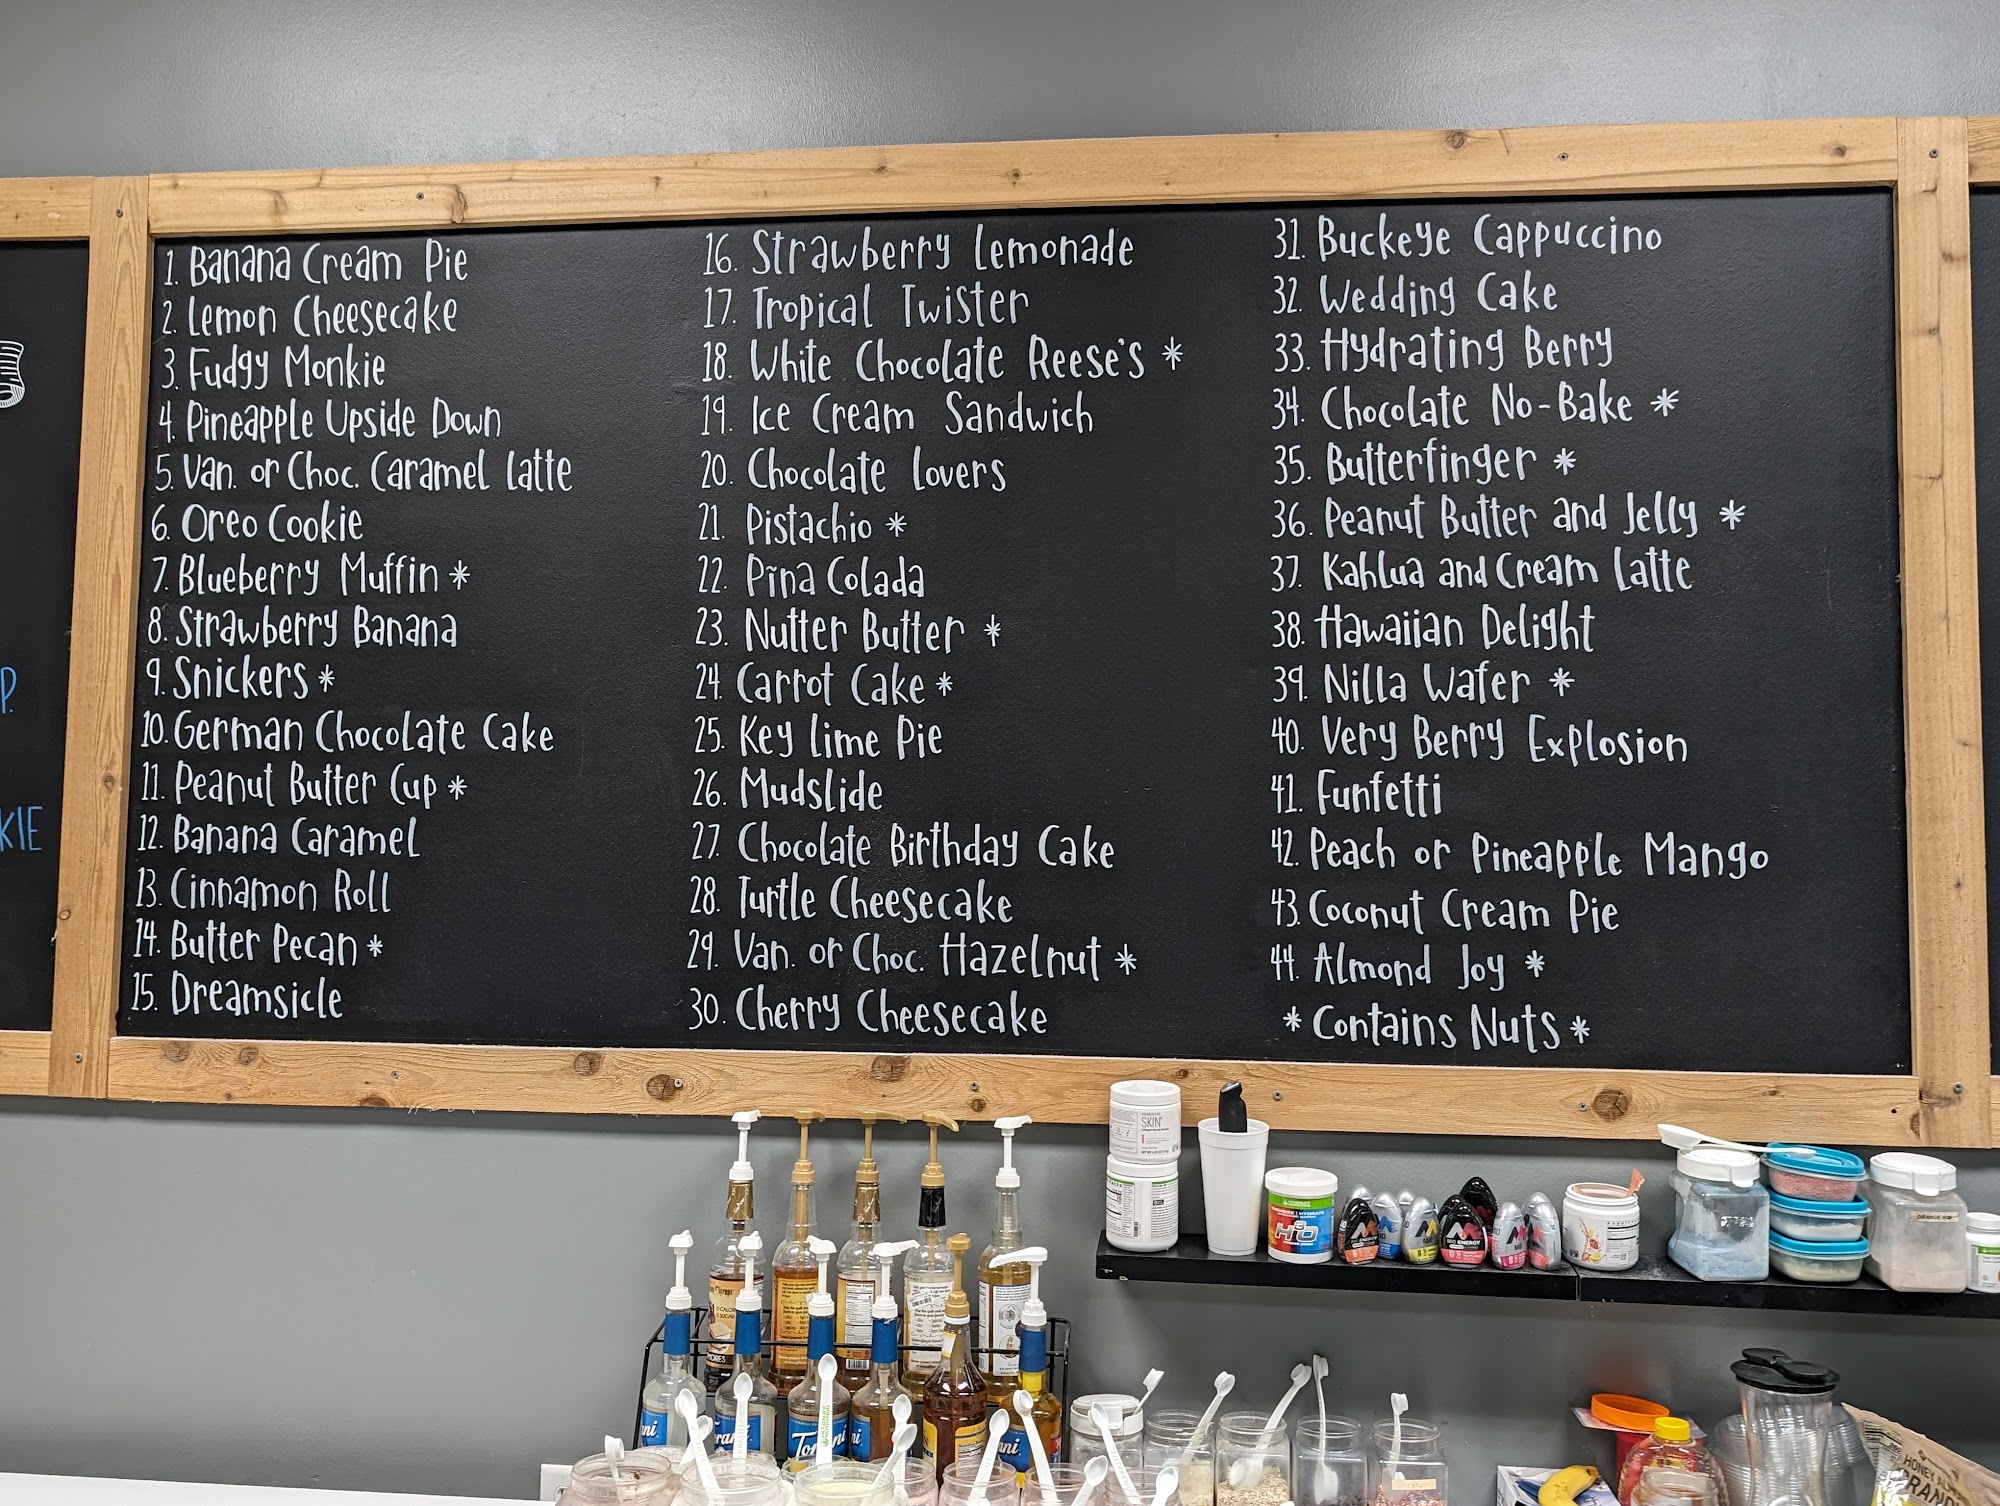 1. Banana Cream Pie
2. Lemon Cheesecake
3. Fudgy Monkie
4. Pineapple Upside Down
5. Van. or Choc. Caramel Latte
6. Oreo Cookie
7. Blueberry Muffin *
8. Strawberry Banana
9. Snickers *
10. German Chocolate Cake
11. Peanut Butter Cup *
12. Banana Caramel
13. Cinnamon Roll
14. Butter Pecan *
15. Dreamsicle
16. Strawberry Lemonade
17. Tropical Twister
18. White Chocolate Reese's *
19. Ice Cream Sandwich
20. Chocolate Lovers
21. Pistachio *
22. Pĩna Colada
23. Nutter Butter *
24. Carrot Cake *
25. Key Lime Pie
26. Mudslide
27. Chocolate Birthday Cake
28. Turtle Cheesecake
29. Van. or Choc. Hazelnut *
30. Cherry Cheesecake
31. Buckeye Cappuccino
32. Wedding Cake
33. Hydrating Berry
34. Chocolate No-Bake *
35. Butterfinger *
36. Peanut Butter and Jelly *
37. Kahlua and Cream Latte
38. Hawaiian Delight
39. Nilla Wafer *
40. Very Berry Explosion
41. Funfetti
42. Peach or Pineapple Mango
43. Coconut Cream Pie
44. Almond Joy *
* Contains Nuts *
P.
KIE
SKIN
H3O
ENERGY
Torani
HONEY